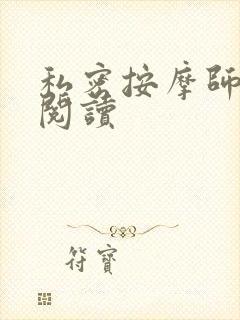 私密按摩師
閱讀
符寶